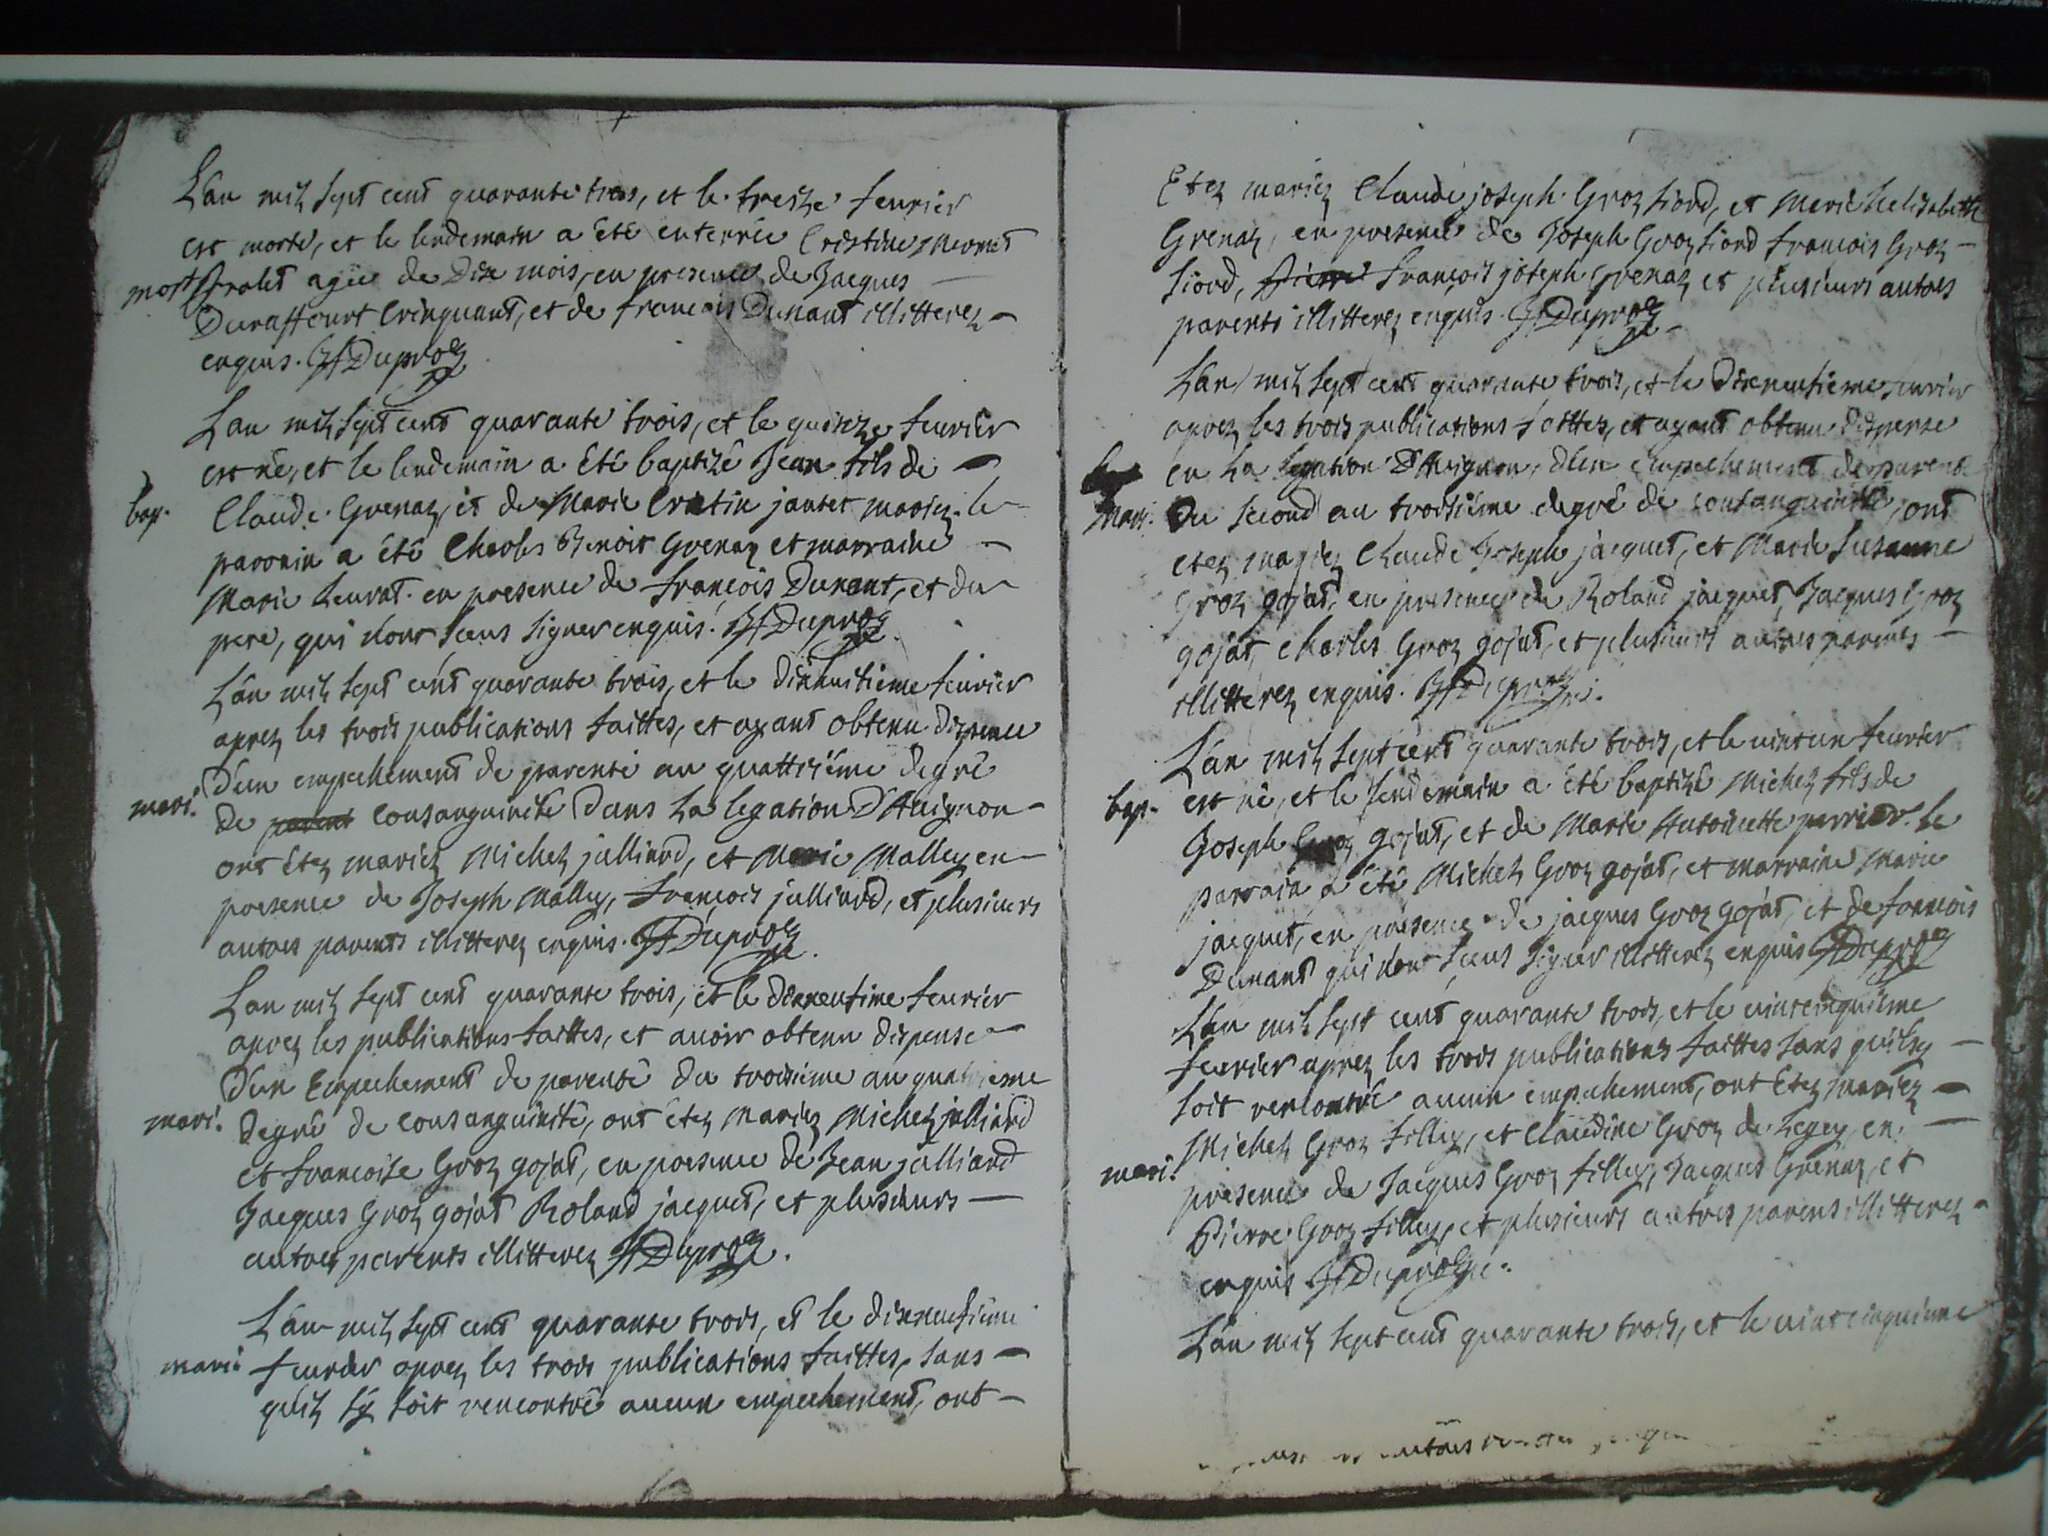 L'an mil sept cent quarante trois, et le treize feurier
est morte, et le lendemain a été enterrée Cristine Mermet
mort. agée de Dix mois, en presence de Jacques
Duraffourt Cringuant, et de francois Dunant illitterez
enquis. JfDuproz
L'an mil sept cent quarante trois, et le quinze feurier
est né, et le lendemain a été baptizé Jean fils de
bap. Claude Grenaz, et de Marie Cristin jantet mariez. le
parrain a été Charles Benoit Grenaz et marraine
Marie Leurat. en presence de françois Dunant, et du
pere, qui n'ont sceus signer enquis. JfDuproz
L'an mil sept cent quarante trois, et le dixhuitieme feurier
aprez les trois publications faittes, et ayant obtenu dispense
D'un empechement de parenté au quattriéme degré
mari. de parent consanguinité Dans La legation D'Auignon
ont étez mariez Michel julliard, et Marie Malley en
presence de Joseph Malley, françois julliard, et plusieurs
autres parents illitterez enquis. JfDuproz
L'an mil sept cent quarante trois, et le dixneufime feurier
aprez les publications faittes, et auoir obtenu dispense
D'un Empechement de parenté du troisieme au quatrieme
mari. degré de consanguinité, ont étez Mariez Michel julliard
et francoise Groz gojat, en presence de Jean julliard
Jacques Groz gojat Roland jacquet, et plusieurs
autres parents illitterez JfDuproz.
L'an mil sept cent quarante trois, et le dixneufiéme
mari. feurier aprez les trois publications faittes, sans
qu'il sy soit rencontré aucun empechement, ont
Etez mariez Claude joseph Groz fiord, et Marie helisabeth
Grenaz, en presence de Joseph Groz fiord francois Groz
fiord, Pierre françois joseph Grenaz et plusieurs autres
parents illitterez enquis. JfDuproz
L'an mil sept cent quarante trois, et le Dixneufieme feurier
aprez les trois publications faittes, et ayant obtenu dispense
en La legation D'Auignon, d'un empechement de parenté
mari. Du second au troisiéme degré de consanguinité, ont
etez mariez Claude Joseph jacquet, et Marie Susanne
Groz gojat, en presence de Roland jacquet, Jacques Groz
gojat, Charles Groz gojat, et plusieurs autres parents
illitterez enquis. JfDuproz.
L'an mil sept cent quarante trois, et le uintun feurier
bap. est né, et le lendemain a été baptizé Michel fils de
Joseph Groz gojat, et de Marie Antoinette perrier. le
parrain a été Michel Groz gojat, et marraine Marie
jacquet, en presence de jacques Groz gojat, et de francois
Dunant qui n'ont sceus signer illitterez enquis JfDuproz
L'an mil sept cent quarante trois, et le uintcinquieme
feurier aprez les trois publications faittes sans qu'il sy
soit rencontré aucun empechement, ont étez mariez
Michel Groz filley, et Claudine Groz de Legey, en
mari. presence de Jacques Groz filley, Jacques Grenaz, et
Pierre Groz filley, et plusieurs autres parens illitterez
enquis JfDuproz.
L'an mil sept cent quarante trois, et le uintcinquieme